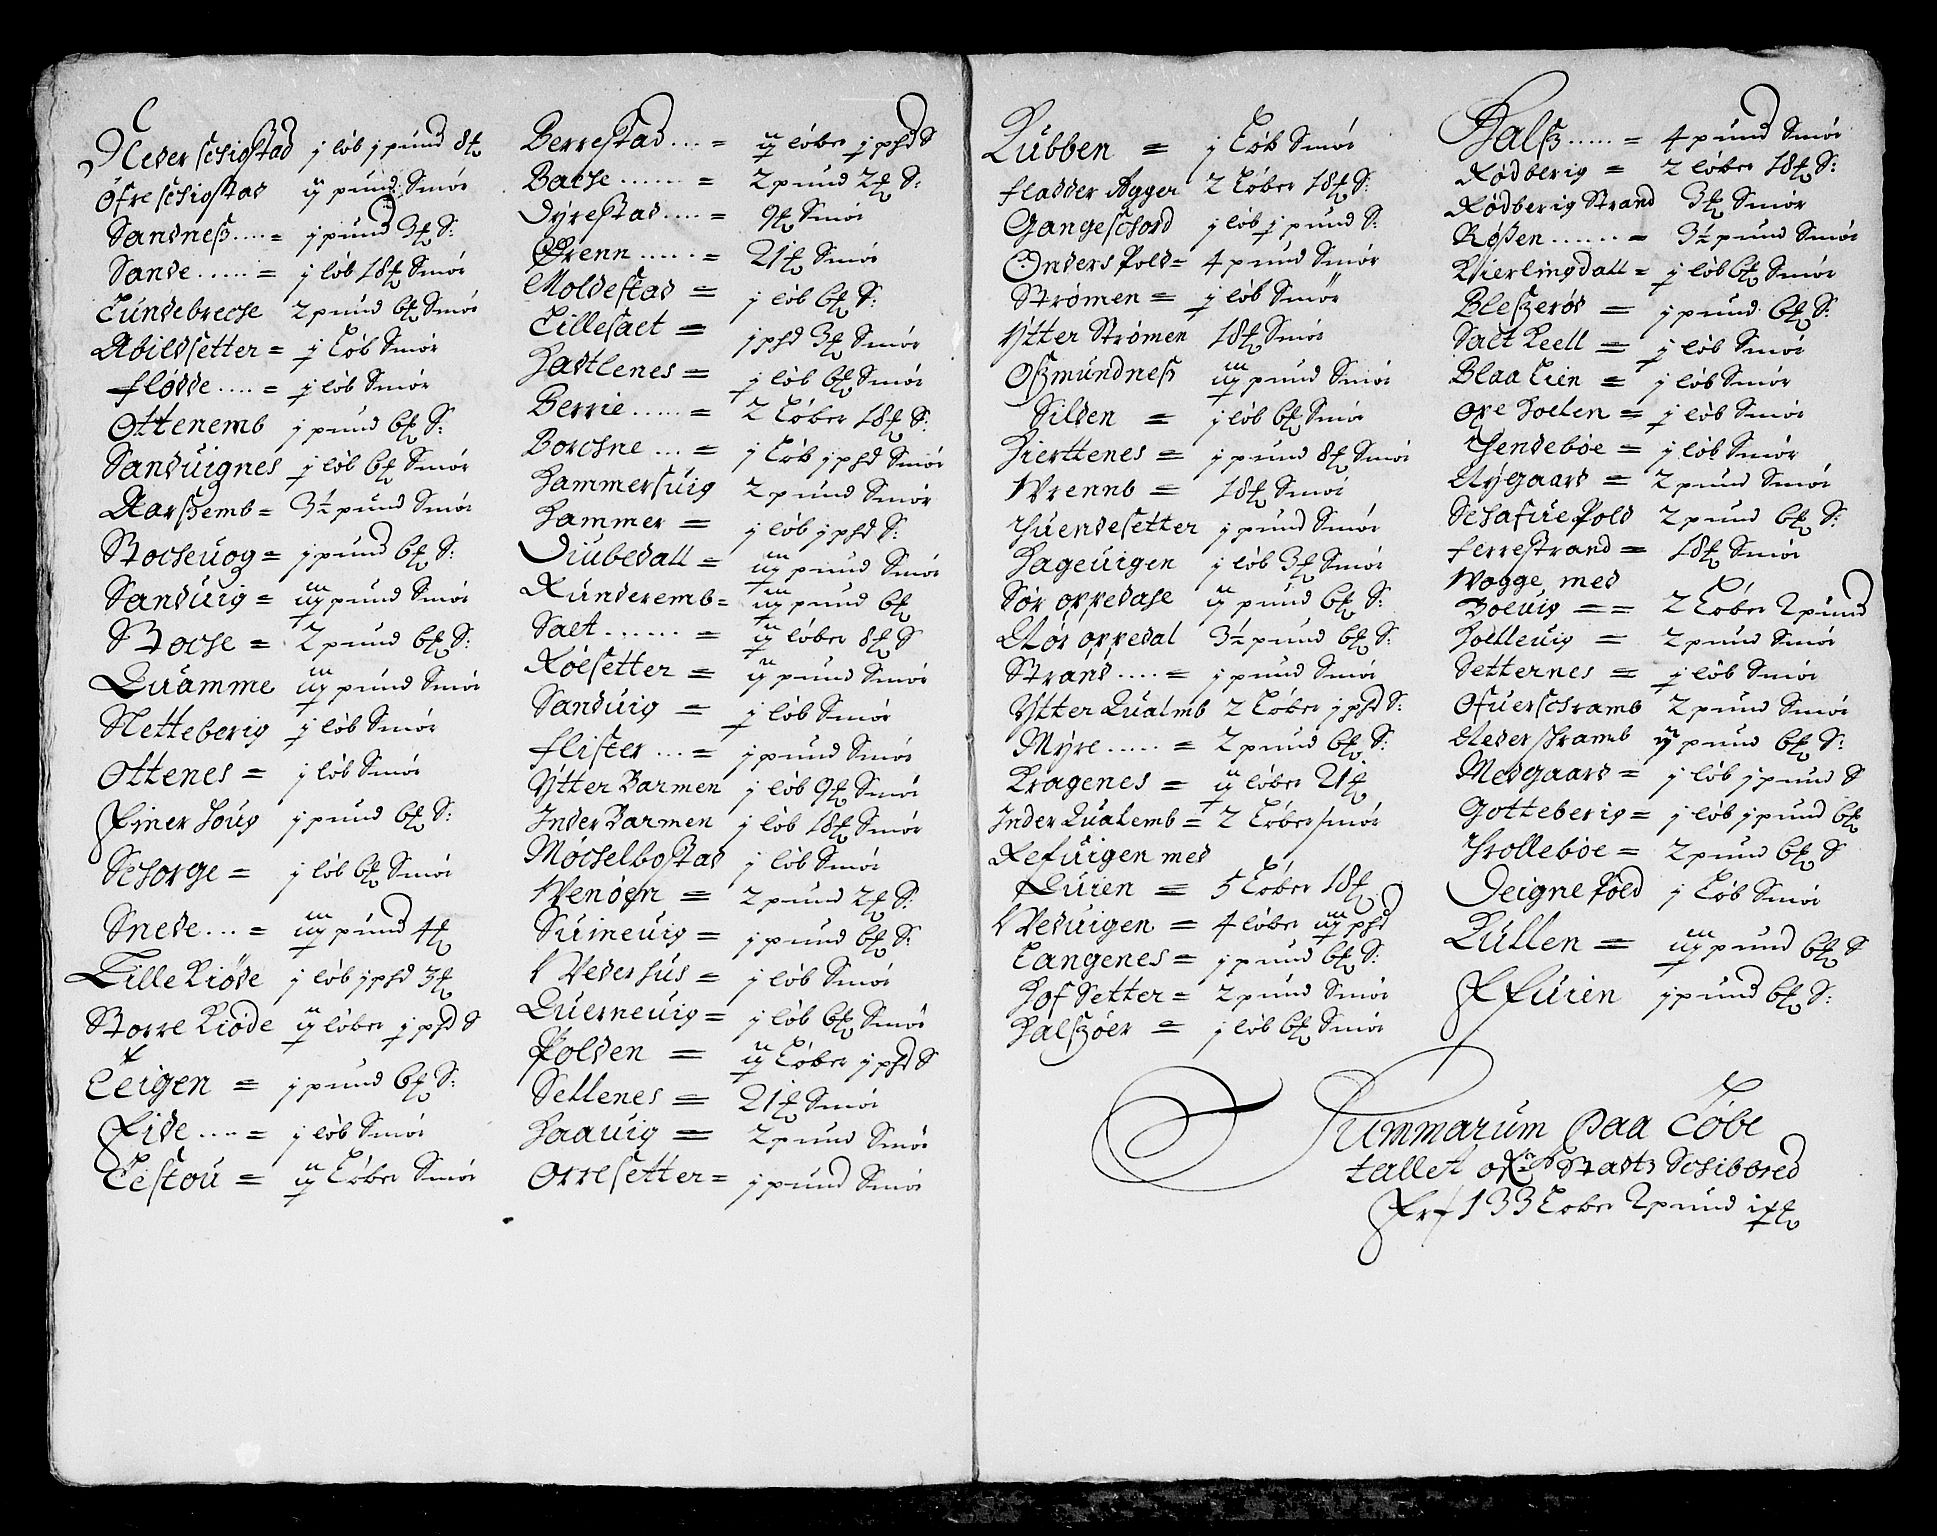 Neder schiostad j löb j pund 8 ℔
Öfre schiostad ij pund Smör
Sandneß .... = j pund 3 ℔ S:
Sande ..... = j löb 18 ℔ Smör
Lundebreche 2 pund 6 ℔ Smör
Abildsetter = j Löb Smör
flödde .... = j löb Smör
Ottenemb j pund 6 ℔ S:
Sanduignes j löb 6 ℔ Smör
Aarßemb = 3½ pund Smör
Stocheuog = j pund 6 ℔ S:
Sanduig = iij pund Smör
Stoche = 2 pund 6 ℔ S:
Quamme iij pund Smör
Netteberig j löb Smör
Ottenes = j löb Smör
Finer houg j pund 6 ℔ S:
Schorge = j löb 6 ℔ Smör
Snede ... = iij pund 4 ℔
Lille Riöde j löb j phd 3 ℔
Storre Riöde ij löber j phd S
Leigen = j pund 6 ℔ S:
Fide .... = j löb Smör
Lestou = ij Löber Smör
Berrestad .... = ij löber j phd S
Bache ...... = 2 pund 2 ℔ S:
Dÿrestad .... = 9 ℔ Smör
Ørenn ..... = 21 ℔ Smör
Moldestad = j löb 6 ℔ S:
Lillesaet = j phd 3 ℔ Smör
Hastlenes = j löb 6 ℔ Smör
Berrie ..... = 2 Löber 18 ℔ S:
Borchne ... = j Löb j phd Smör
Hammersuig 2 pund Smör
Hammer = j löb j phd S:
Diubedall = iij pund Smör
Runderemb = iij pund 6 ℔
Saet ...... = ij löber 8 ℔ S
Röesetter = ij pund Smör
Sanduig = j löb Smör
flister ... = j pund Smör
Ytter Barmen j löb 9 ℔ Smör
Inder Barmen j löb 18 ℔ Smör
Möchelbostad j löb Smör
Wenöen = 2 pund 2 ℔ S:
Suineuig = j pund 6 ℔ S:
Wedershus = j löb Smör
Querneuig = j löb 6 ℔ Smör
Polden = ij Löber j phd S
Sellenes = 21 ℔ Smör
Haauig = 2 pund Smör
Orresetter = j pund Smör
Lubben = j Löb Smör
fladder Agger 2 Löber 18 ℔ S:
Gangeschord j löb j pund S:
Onders Pold = 4 pund Smör
Strömen = j löb Smör
Ytter Strömen 18 ℔ Smör
Oßmundneß iij pund Smör
Silden = j löb 6 ℔ Smör
Hierttenes = j pund 8 ℔ Smör
Wrennb = 18 ℔ Smör
Thuendesetter j pund Smör
Hageuigen j löb 3 ℔ Smör
Sör oppedahl ij pund 6 ℔ S:
Nör oppedal 3½ pund 6 ℔ S:
Strand .... = j pund Smör
Ytter Qualmb 2 Löber j phd S:
Mÿre ..... = 2 pund 6 ℔ S:
Kragenes = ij löber 21 ℔
Inder Qualemb = 2 Löber smör
Refuigen med
Duien = 5 Löber 18 ℔
Weduigen = 4 löber iij phd
Langenes = j pund 6 ℔ S:
Hof Setter = 2 pund Smör
Halßöer = j löb 6 ℔ Smör
Halß ..... = 4 pund Smör
Rödberig = 2 löber 18 ℔ S:
Rödberig Strand 3 ℔ Smör
Rößen ...... = 3½ pund Smör
Kierlingdall = j löb 6 ℔ Smör
Bleßeröd = j pund 6 ℔ S:
Salt Keell = j löb Smör
Blaa Lien = j löb Smör
Oxe Hoelen = j löb Smör
Thendeböe = j löb Smör
Nÿgaard = 2 pund Smör
Schafue Pold 2 pund 6 ℔ S:
ferrestrand = 18 ℔ Smör
Wogge med
Boeuig == 2 Löber 2 pund
Holleuig = 2 pund Smör
Setternes = j löb Smör
Ofuerschramb 2 pund Smör
Nederskramb ij pund 6 ℔ S:
Medgaard = j löb j pund S
Gotteberig = j löb j pund 6 ℔
Trolleböe = 2 pund 6 ℔ S
Deigne Pold j Löb Smör
Lullen = iij pund 6 ℔ S
Ffuien j pund 6 ℔ S:
Summarum Paa Löbe
tallet Stadts Schibbred
Er 133 Löber 2 pund